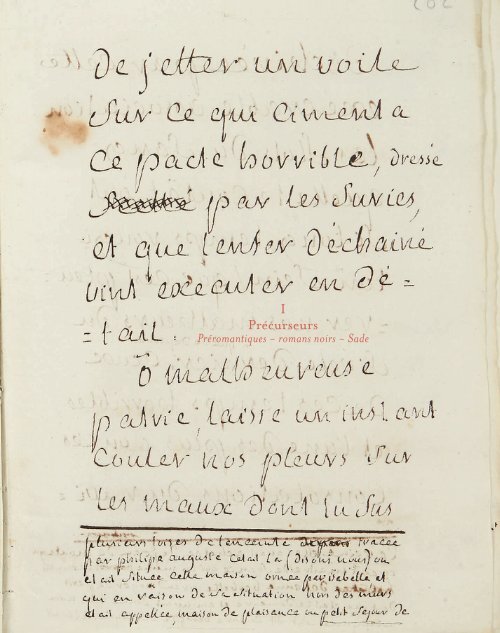 202
de jetter un voile
sur ce qui cimenta
ce pacte horrible, dressé
par les furies,
et que l'enfer déchainé
vint exécuter en dé =
= tail.
I
Précurseurs
Préromantiques – romans noirs – Sade
Ô malheureuse
patrie, laisse un instant
couler nos pleurs sur
les maux dont tu fus
plusieurs toises de l'enceinte tracée
par philipe auguste cetait la (disons nous) ou
etait située cette maison ornée par isabelle et
qui en raison de sa situation hors des murs
etait appellée, maison de plaisance ou petit sejour de